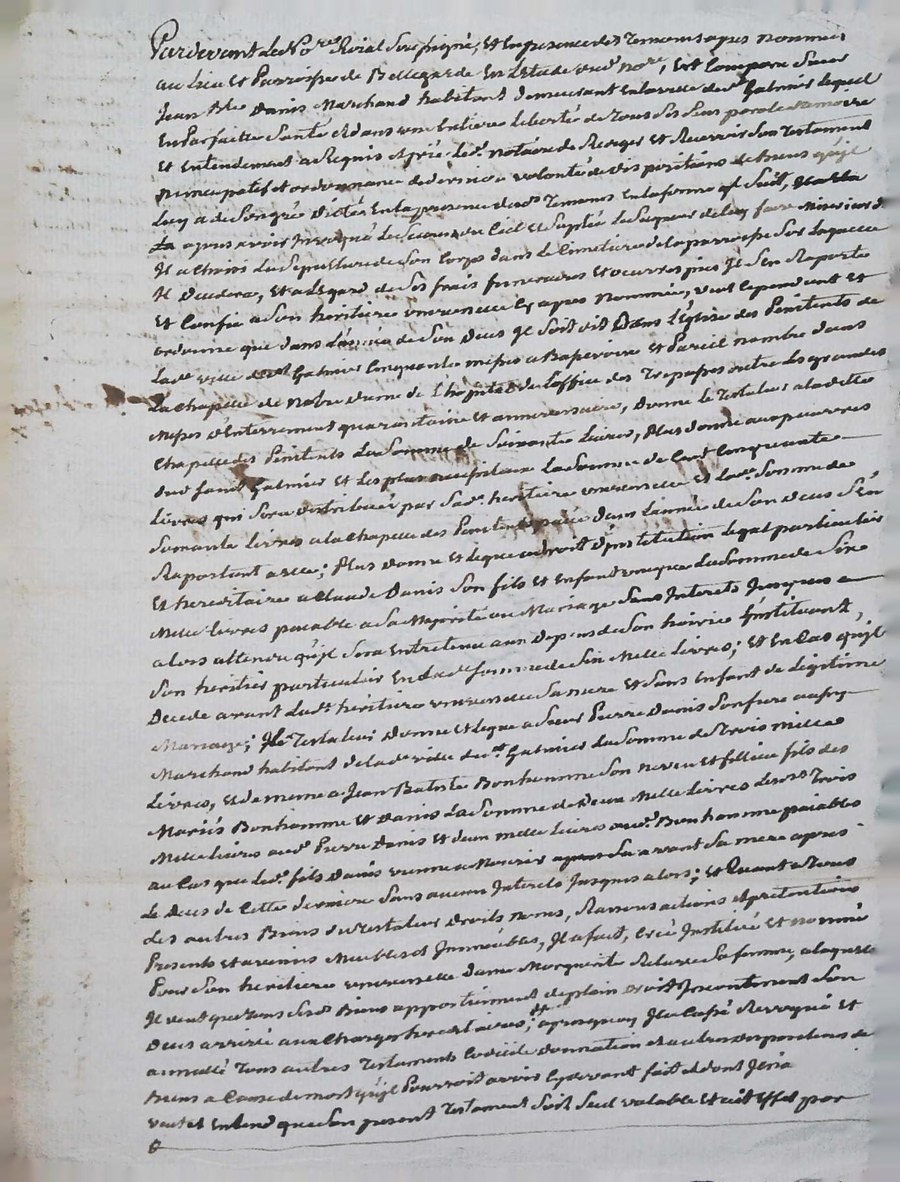 Pardevant Le No.re Roial Soussigné, Et En presence des Temoins apres nommés
au Lieu Et Parroisse de Bellegarde En Letude dud. no.re, Est Comparu Sieur
Jean B.te Danis Marchand habitant demeurant En la ville de S.t Galmier lequel
En Parfaitte Santé Et dans une Entiere Liberté de Tous Ses Sens parole memoire
Et Entendement a Requis Et prié Led. Notaire de Rediger Et Recevoir Son Testament
nuncupatif et ordonnance de derniere volonté de disposition de biens qu'jl
Luy a de Son gré dicté En la presence desd. Temoins En la forme q.l Suit,
apres avoir Invoqué Le Secours du Ciel Et Suplié Le Seigneur de luy faire Misericorde
Jl a Choisi La Sepulture de Son Corps dans le Cimetiere de la parroisse Sur Laquelle
Jl Decedera, Et a L'Egard de Ses frais funeraires Et oeuvres pies Jl S'En Raporte
Et Confie a Son heritiere universelle Cy apres Nommée, veut Cependant Et
ordonne que dans L'année de Son Deces Jl Soit dit Dans L'Eglise des Penitents de
Lad. ville de S.t Galmier Cinquante messes a Basse voix Et Pareil nombre dans
La Chapelle de Notre dame de L'hopital de L'office des Trepassés outre Les grandes
Messes d'Enterrement quarantaine Et anniversaire, Donne Le Testateur a la ditte
Chapelle des Penitents La Somme de Soixante Livres, Plus donne aux pauvres
dud. Saint Galmier Et Les plus necessiteux La Somme de Cent Cinquante
Livres qui Sera distribuée par Sad. heritiere universelle Et Lad. Somme de
Soixante Livres a la Chapelle des Penitents payée dans L'année de Son deces S'En
Raportant a Elle; Plus donne Et Legue a droit d'institution Legat particulier
Et hereditaire a Claude Danis Son fils Et Enfant unique La Somme de Six
Mille Livres paiable a Sa Majorité ou Mariage Sans Interets Jusques a
alors attendu qu'jl Sera Entretenu aux Depens de Son hoirie Jnstituant,
Son heritier particulier En Lad. Somme de Six Mille Livres; Et En Cas qu'jl
Decede avant Lad. heritiere universelle Sa mere Et Sans Enfant de Légitime
Mariage; Le Testateur Donne Et Legue a Sieur Pierre Danis Son frere aussy
Marchand habitant de lad. ville de S.t Galmier La Somme de Trois mille
Livres, Et de meme a Jean Batiste Bonhomme Son Neveu Et filleul fils des
Mariés Bonhomme Et Danis La Somme de Deux Mille Livres Lesd. Trois
Mille Livres aud. Pierre Danis Et deux mille Livres aud. Bonhomme paiables
au Cas que Led. fils Danis vienne a Mourir avant Sa mere apres
Le Deces de Cette derniere Sans aucun Interets Jusques alors; Et Quant a Tous
des autres Biens du Testateur Droits noms, Raisons actions Et pretentions
Presents Et avenirs Meubles et Jmmeubles, Jl a fait, Créé Jnstitué Et Nommé
Pour Son heritiere universelle dame Marguerite Sa femme, a laquelle
Jl veut que Tous Sesd. Biens appartiennent de plein Droit Jncontinent Son
Deces arrivé aux Charges hereditaires; apres quoy Jl a Cassé Revoqué Et
annullé Tous autres Testaments Codicile donnation et autres dispositions de
Biens a Cause de mort qu'jl Pourroit avoir Cy devant fait Et dont Jl n'a
veut Et Entend que Son present Testament Soit Seul valable Et ait Effet par